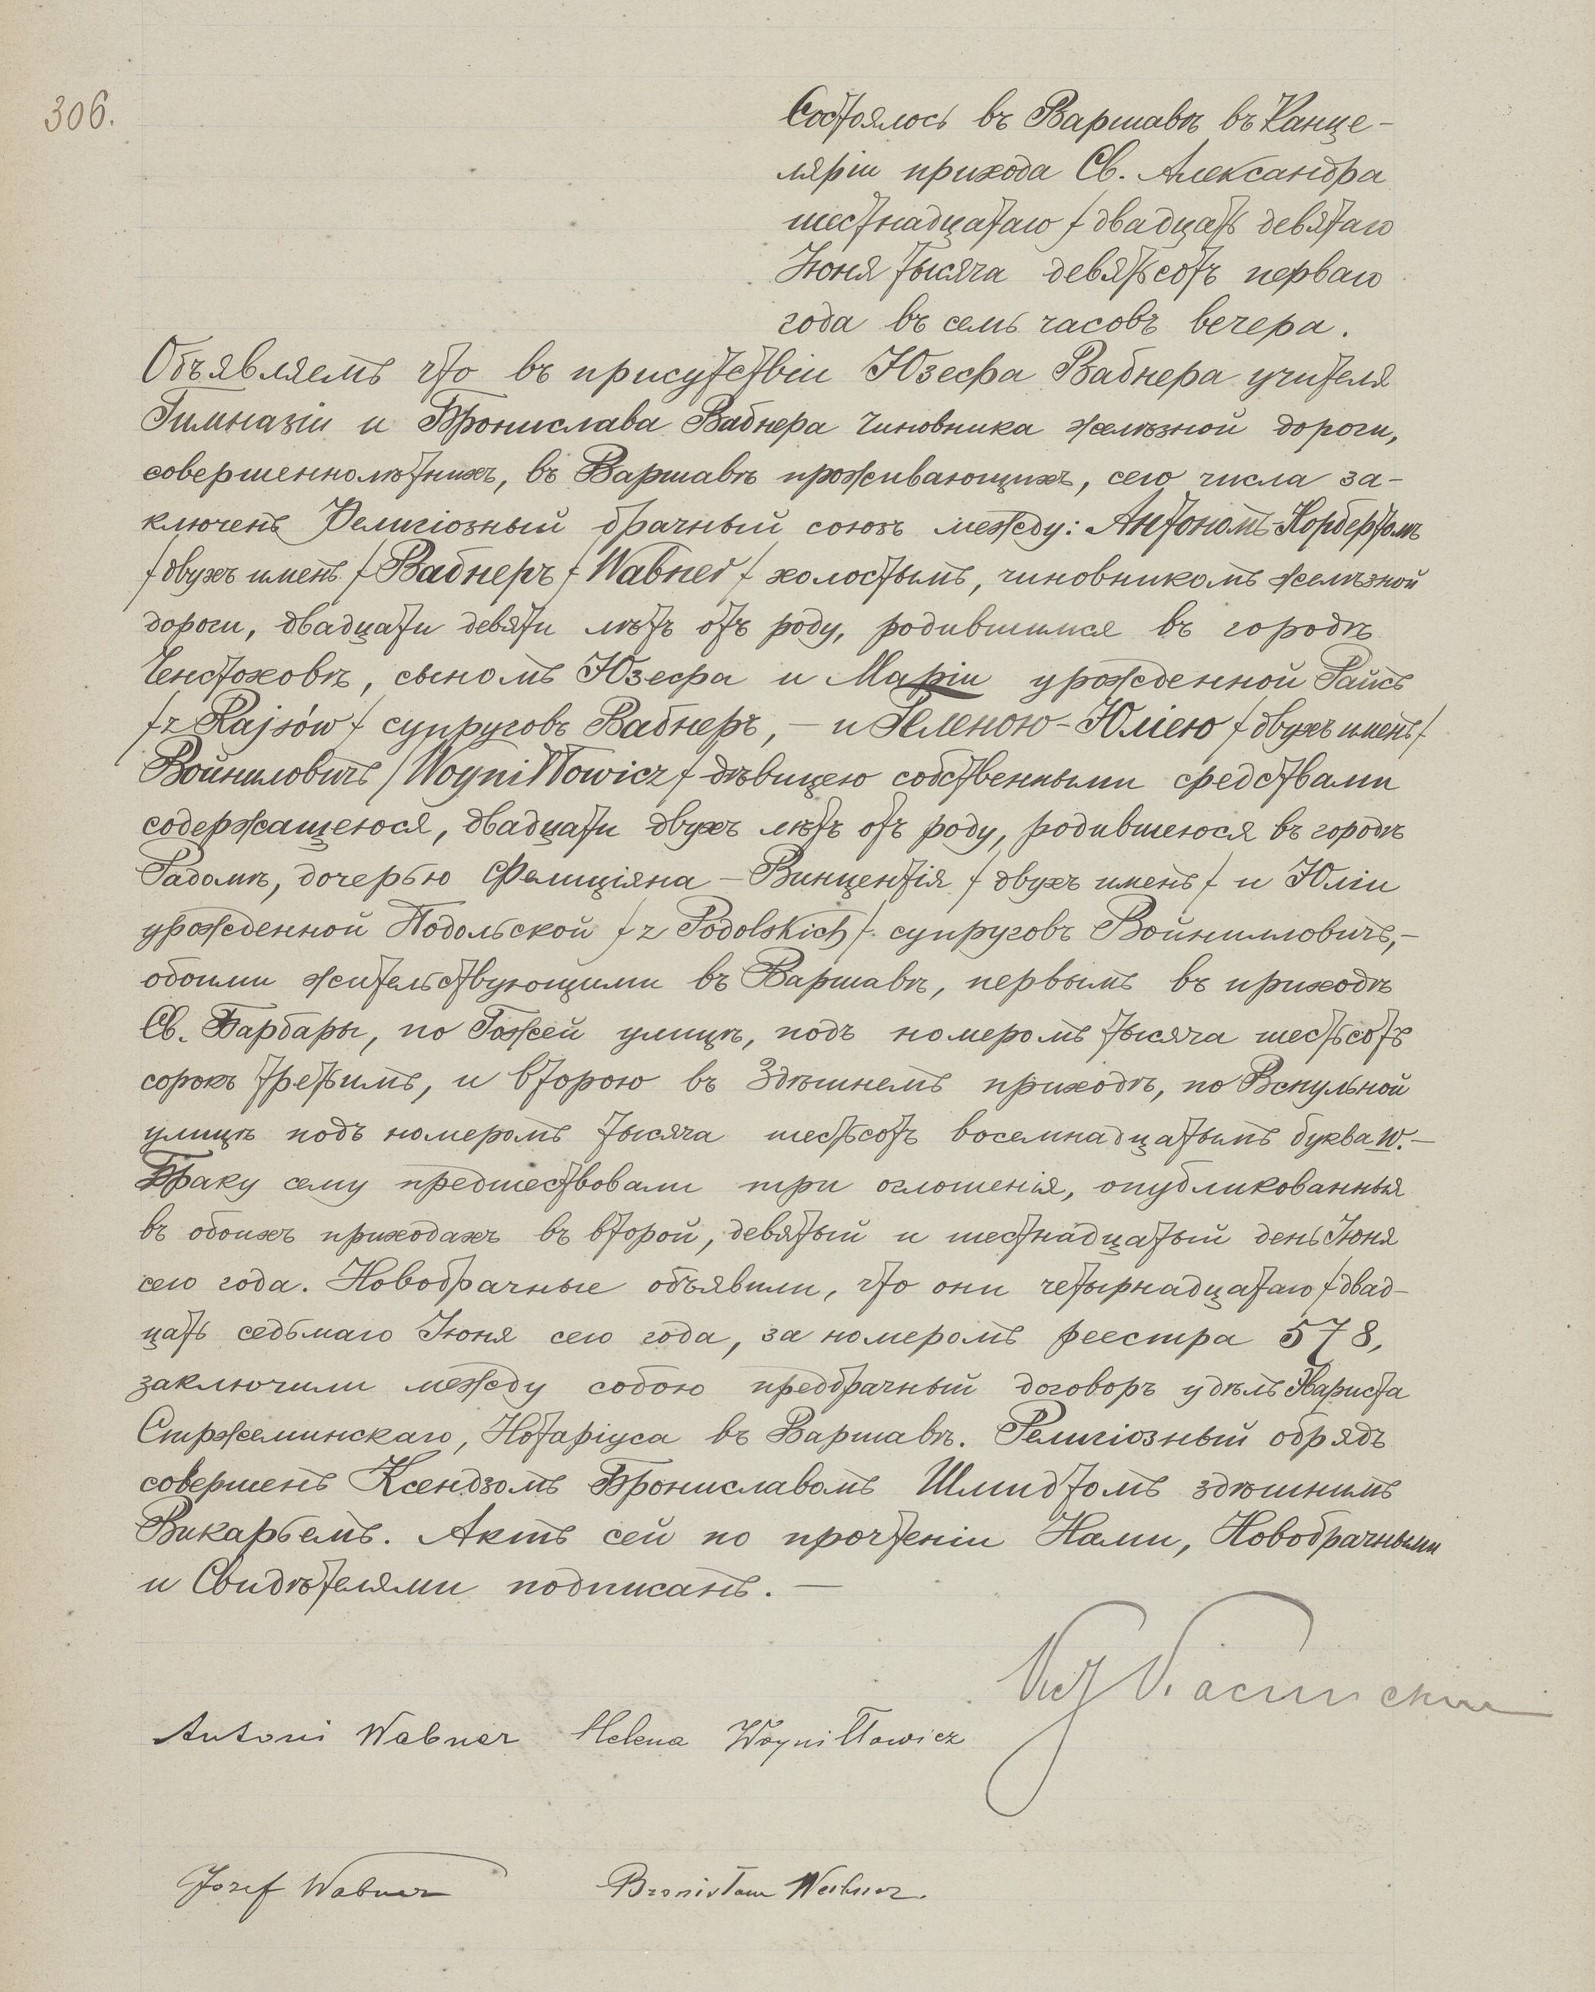 306.
Состоялось въ Варшавѣ въ Канце-
ляріи прихода Св. Александра
шестнадцатаго / двадцать девятаго
Іюня тысяча девятьсотъ перваго
года въ семь часовъ вечера.
Объявляемъ что въ присутствіи Юзефа Вабнера учителя
Гимназіи и Бронислава Вабнера чиновника желѣзной дороги,
совершеннолѣтнихъ, въ Варшавѣ проживающихъ, сего числа за-
ключенъ Религіозный брачный союзъ между: Антономъ-Норбертомъ
/ двухъ именъ / Вабнеръ / Wabner / холостымъ, чиновникомъ желѣзной
дороги, двадцати девяти лѣтъ отъ роду, родившимся въ городѣ
Ченстоховѣ, сыномъ Юзефа и Маріи урожденной Райсъ
/ z Rajsów / супруговъ Вабнеръ, — и Геленою-Юліею / двухъ именъ /
Войниловичъ / Woyniłłowicz / дѣвицею собственными средствами
содержащеюся, двадцати двухъ лѣтъ отъ роду, родившеюся въ городѣ
Радомѣ, дочерью Фелиціяна-Винцентія / двухъ именъ / и Юліи
урожденной Подольской / z Podolskich / супруговъ Войнилловичъ, —
обоими жительствующими въ Варшавѣ, первымъ въ приходѣ
Св. Барбары, по Гожей улицѣ, подъ номеромъ тысяча шестьсотъ
сорокъ третьимъ, и второю въ Здѣшнемъ приходѣ, по Вспульной
улицѣ подъ номеромъ тысяча шестьсотъ восемнадцатымъ буква W. —
Браку сему предшествовали три оглошенія, опубликованныя
въ обоихъ приходахъ въ второй, девятый и шестнадцатый день Іюня
сего года. Новобрачные объявили, что они четырнадцатаго / двад-
цать седьмаго Іюня сего года, за номеромъ реестра 578,
заключили между собою предбрачный договоръ у дѣлъ Эвариста
Стржеминскаго, Нотаріуса въ Варшавѣ. Религіозный обрядъ
совершенъ Ксендзомъ Брониславомъ Шмидтомъ здѣшнимъ
Викарьемъ. Актъ сей по прочтеніи Нами, Новобрачными
и Свидѣтелями подписанъ. —
Antoni Wabner Helena Woyniłłowicz
Józef Wabner Bronisław Wabner.